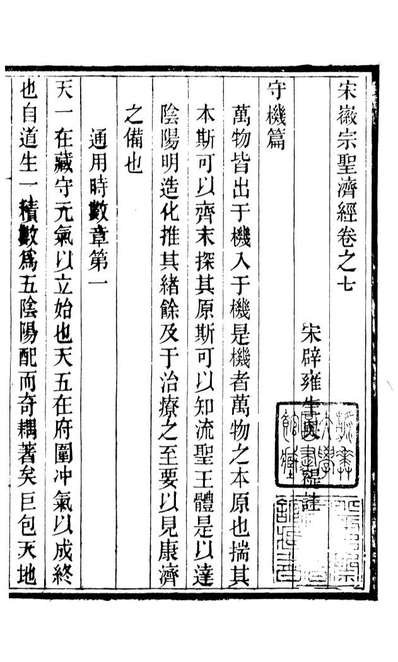 宋徽宗聖濟經卷之七
宋辟雍生吳禔註
守機篇
萬物皆出于機入于機是機者萬物之本原也揣其
本斯可以齊末探其原斯可以知流聖王體是以達
陰陽明造化推其緒餘及于治療之至要以見康濟
之備也
通用時數章第一
天一在藏守元氣以立始也天五在府圍冲氣以成終
也自道生一積數爲五陰陽配而奇耦著矣巨包天地